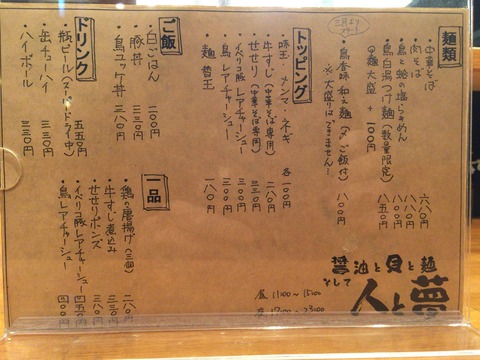 麺類
中華そば 六八〇円
肉そば 八八〇円
鳥と蛤の塩らぁめん 八〇〇円
鳥白湯つけ麺(数量限定) 八五〇円
の麺大盛 + 100円
三月より
スタート
鳥香味和え麺(〆ご飯付) 八〇〇円
※大盛りはできません!
トッピング
味玉・メンマ・ネギ 各一〇〇円
牛すじ(中華そば専用) 二八〇円
せせり(中華そば専用) 二五〇円
イベリコ豚レアチャーシュー 三〇〇円
鳥レアチャーシュー 三〇〇円
麺替玉 一八〇円
ご飯
白ごはん 二〇〇円
豚丼 三三〇円
鳥ユッケ丼 三八〇円
ドリンク
瓶ビール(スーパードライ中) 五五〇円
缶チューハイ 三三〇円
ハイボール 三三〇円
一品
鶏の唐揚げ(三個) 二八〇円
牛すじ煮込み 三三〇円
せせりポンズ 三八〇円
イベリコ豚レアチャーシュー 四〇〇円
鳥レアチャーシュー 四〇〇円
醤油と貝と麺
そして
人と夢
昼 11:00〜15:00
夜 17:00〜23:00